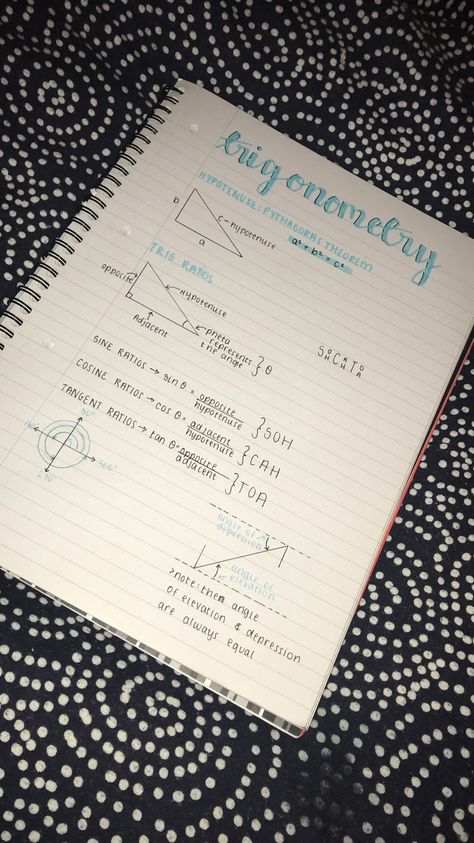 trigonometry
HYPOTENUSE: PYTHAGORAS THEOREM
a² + b² = c²
b
c - hypotenuse
a
TRIG RATIOS
opposite
Hypotenuse
Adjacent
pheta
represents
the angle
} θ
SOH CAH TOA
SINE RATIOS → sin θ = opposite/hypotenuse } SOH
COSINE RATIOS → cos θ = adjacent/hypotenuse } CAH
TANGENT RATIOS → tan θ = opposite/adjacent } TOA
90°
180°
360°
270°
angle of
depression
angle of
elevation
>note: the angle
of elevation & depression
are always equal